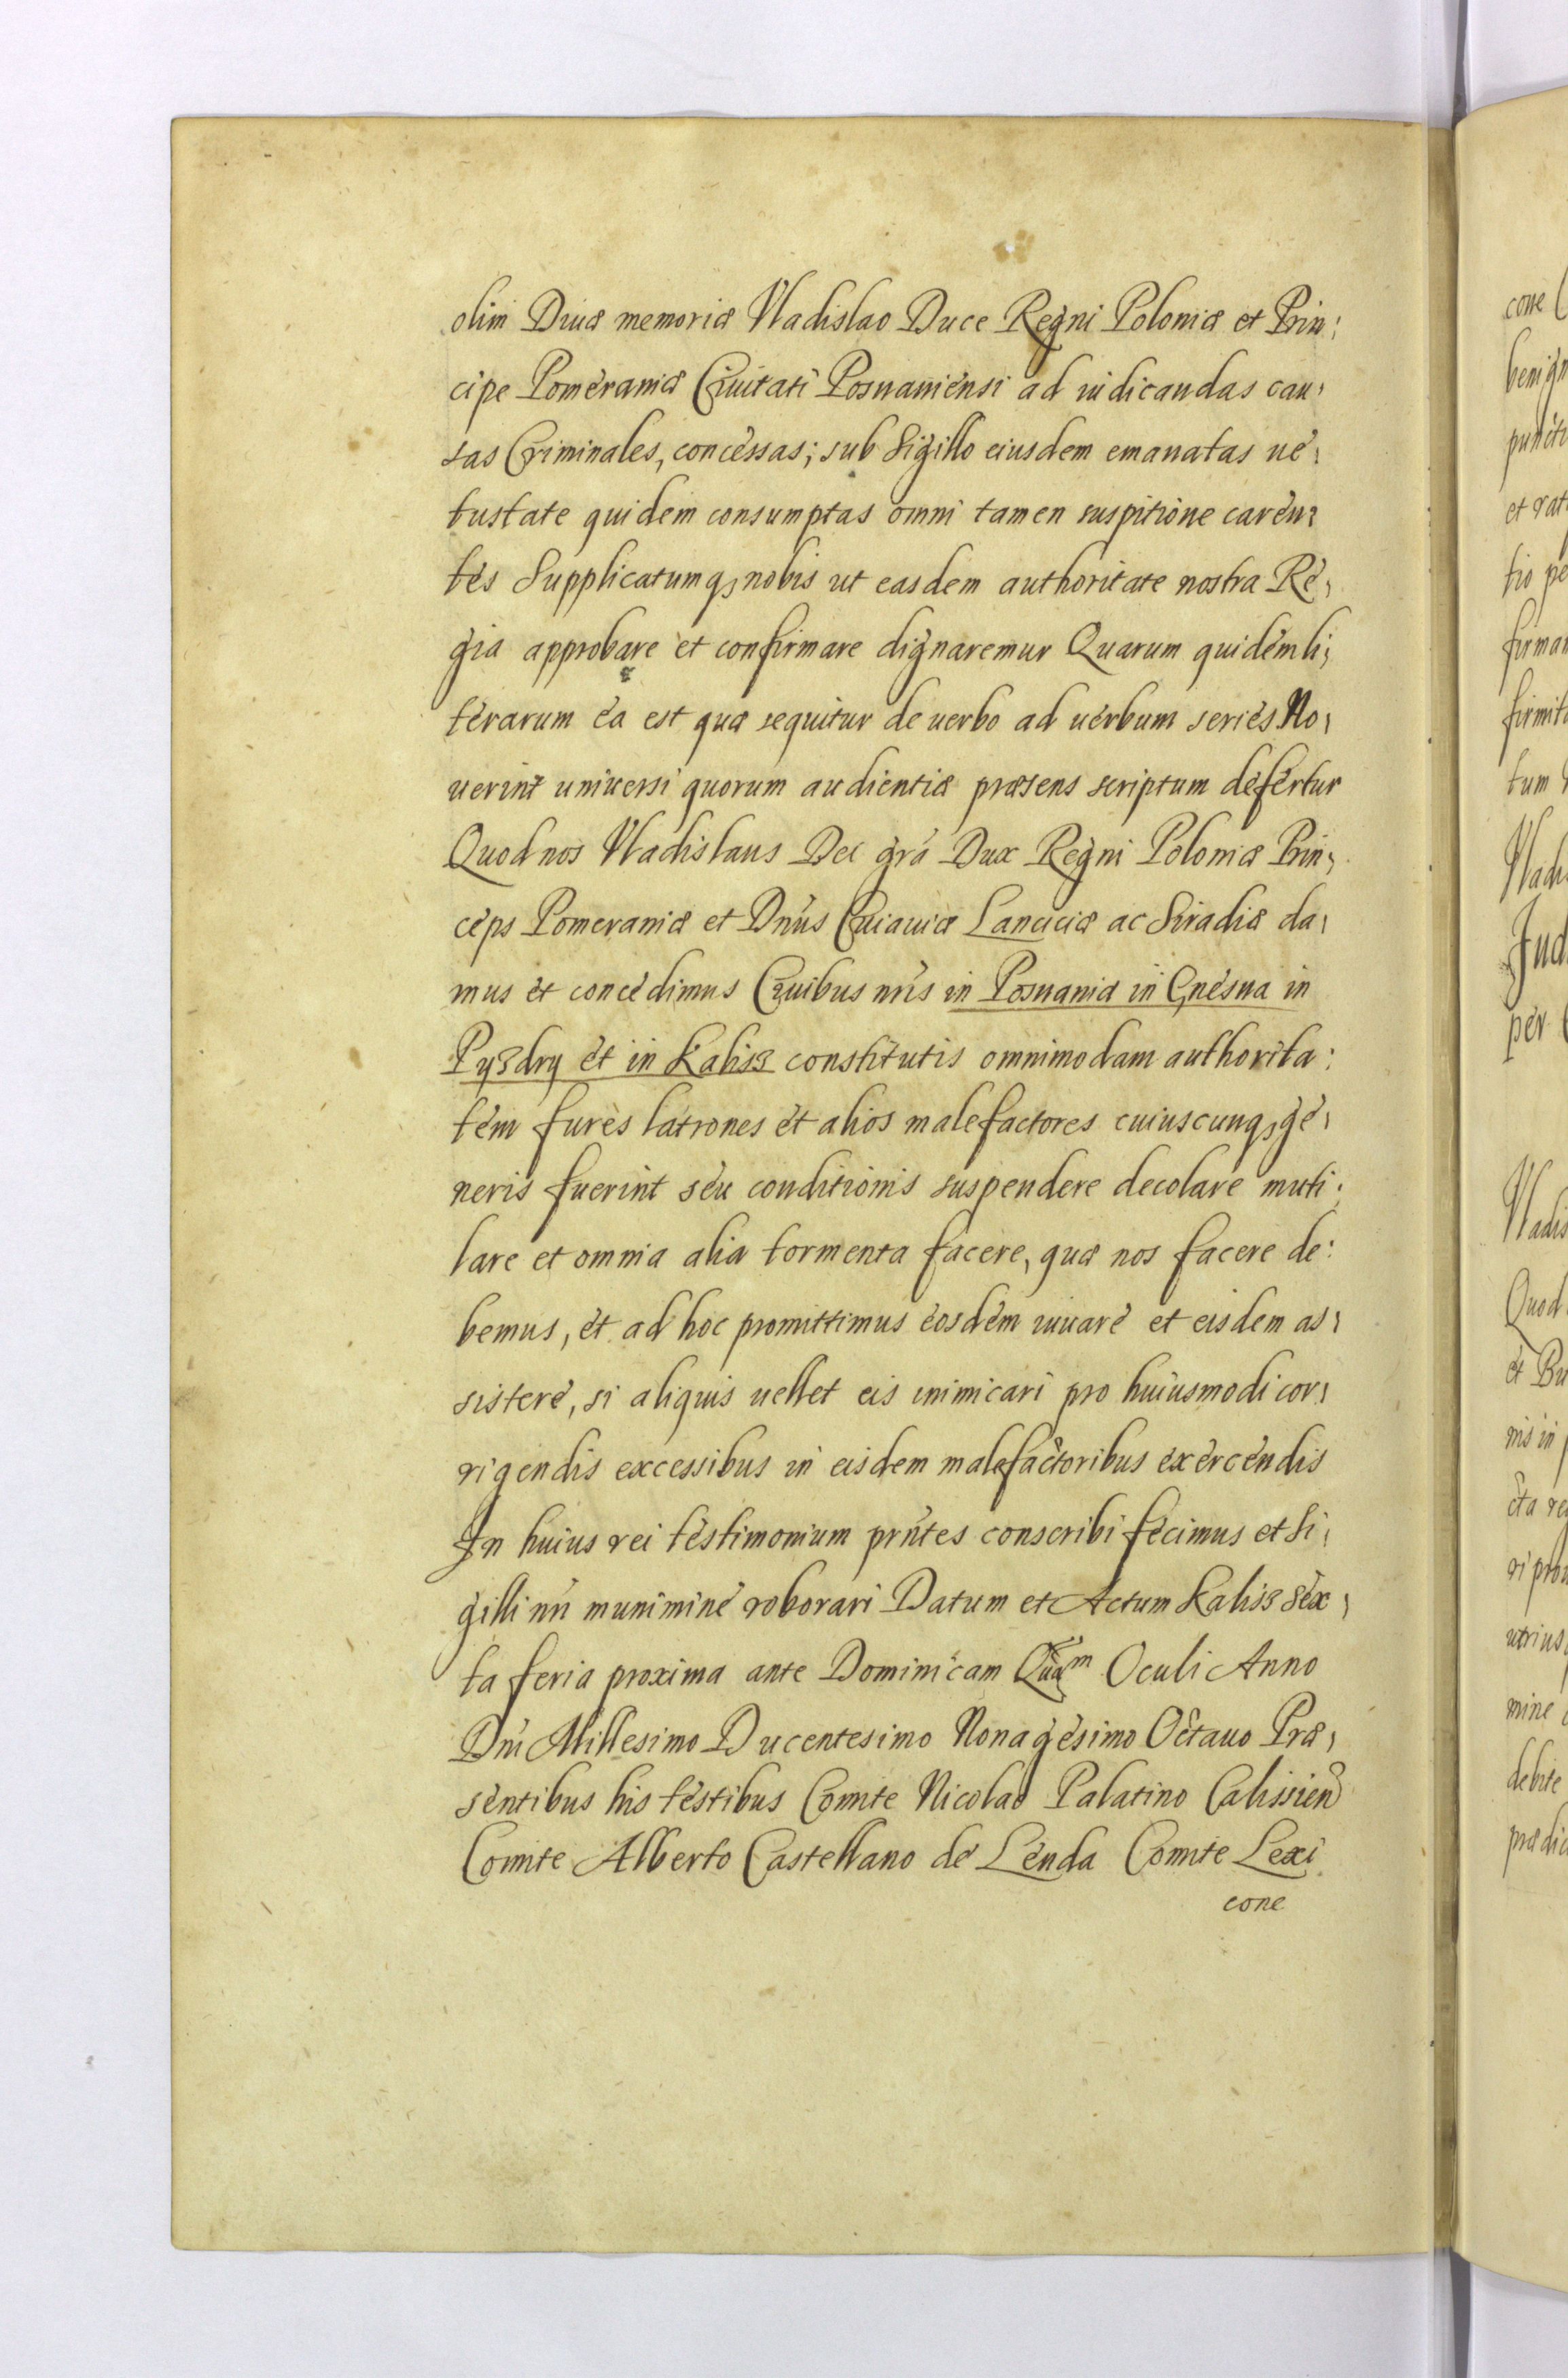 olim Diuæ memoriæ Vladislao Duce Regni Poloniæ et Prin:
cipe Pomeraniæ Ciuitati Posnaniensi ad iudicandas cau,
sas Criminales, concessas; sub Sigillo eiusdem emanatas ue,
tustate quidem consumptas omni tamen suspitione caren,
tes Supplicatumq, nobis ut easdem authoritate nostra Re,
gia approbare et confirmare dignaremur Quarum quidem li,
terarum ea est quæ sequitur de uerbo ad uerbum series No,
uerint uniuersi quorum audientiæ præsens scriptum defertur
Quod nos Vladislaus Dei grã Dux Regni Poloniæ Prin,
ceps Pomeraniæ et Dñus Cuiauiæ Lanciciæ ac Siradiæ da,
mus et concedimus Ciuibus nñs in Posnania in Gnesna in
Pyzdry et in Kalisz constitutis omnimodam authorita:
tem fures latrones et alios malefactores cuiuscunq, ge,
neris fuerint seu conditionis suspendere decolare muti,
lare et omnia alia tormenta facere, quæ nos facere de:
bemus, et ad hoc promittimus eosdem iuuare et eisdem as,
sistere, si aliquis uellet eis inimicari pro huiusmodi cor,
rigendis excessibus in eisdem malefactoribus exercendis
In huius rei testimonium prñtes conscribi fecimus et Si,
gilli nñi munimine roborari Datum et Actum Kalisz Sex,
ta feria proxima ante Dominicam Quam Oculi Anno
Dñi Millesimo Ducentesimo Nonagesimo Octauo Præ,
sentibus his testibus Comite Nicolao Palatino Calissien
Comite Alberto Castellano de Lenda Comite Lexi
cone